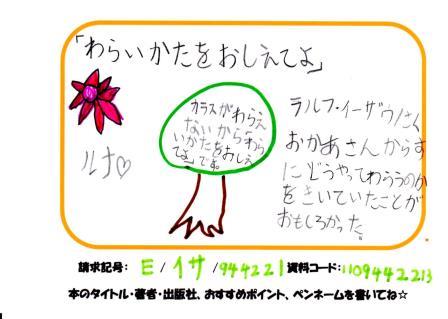 「わらいかたをおしえてよ」
ルナ♡
カラスがわらえ
ないから「わら
いかたをおしえ
てよ」ですね
ラルフ・イーザウ/さく
おかあさんからす
にどうやってわらうのか
をきいていたことが
おもしろかった。
請求記号: E / イサ / 944221 資料コード: 1109442213
本のタイトル・著者・出版社、おすすめポイント、ペンネームを書いてね☆